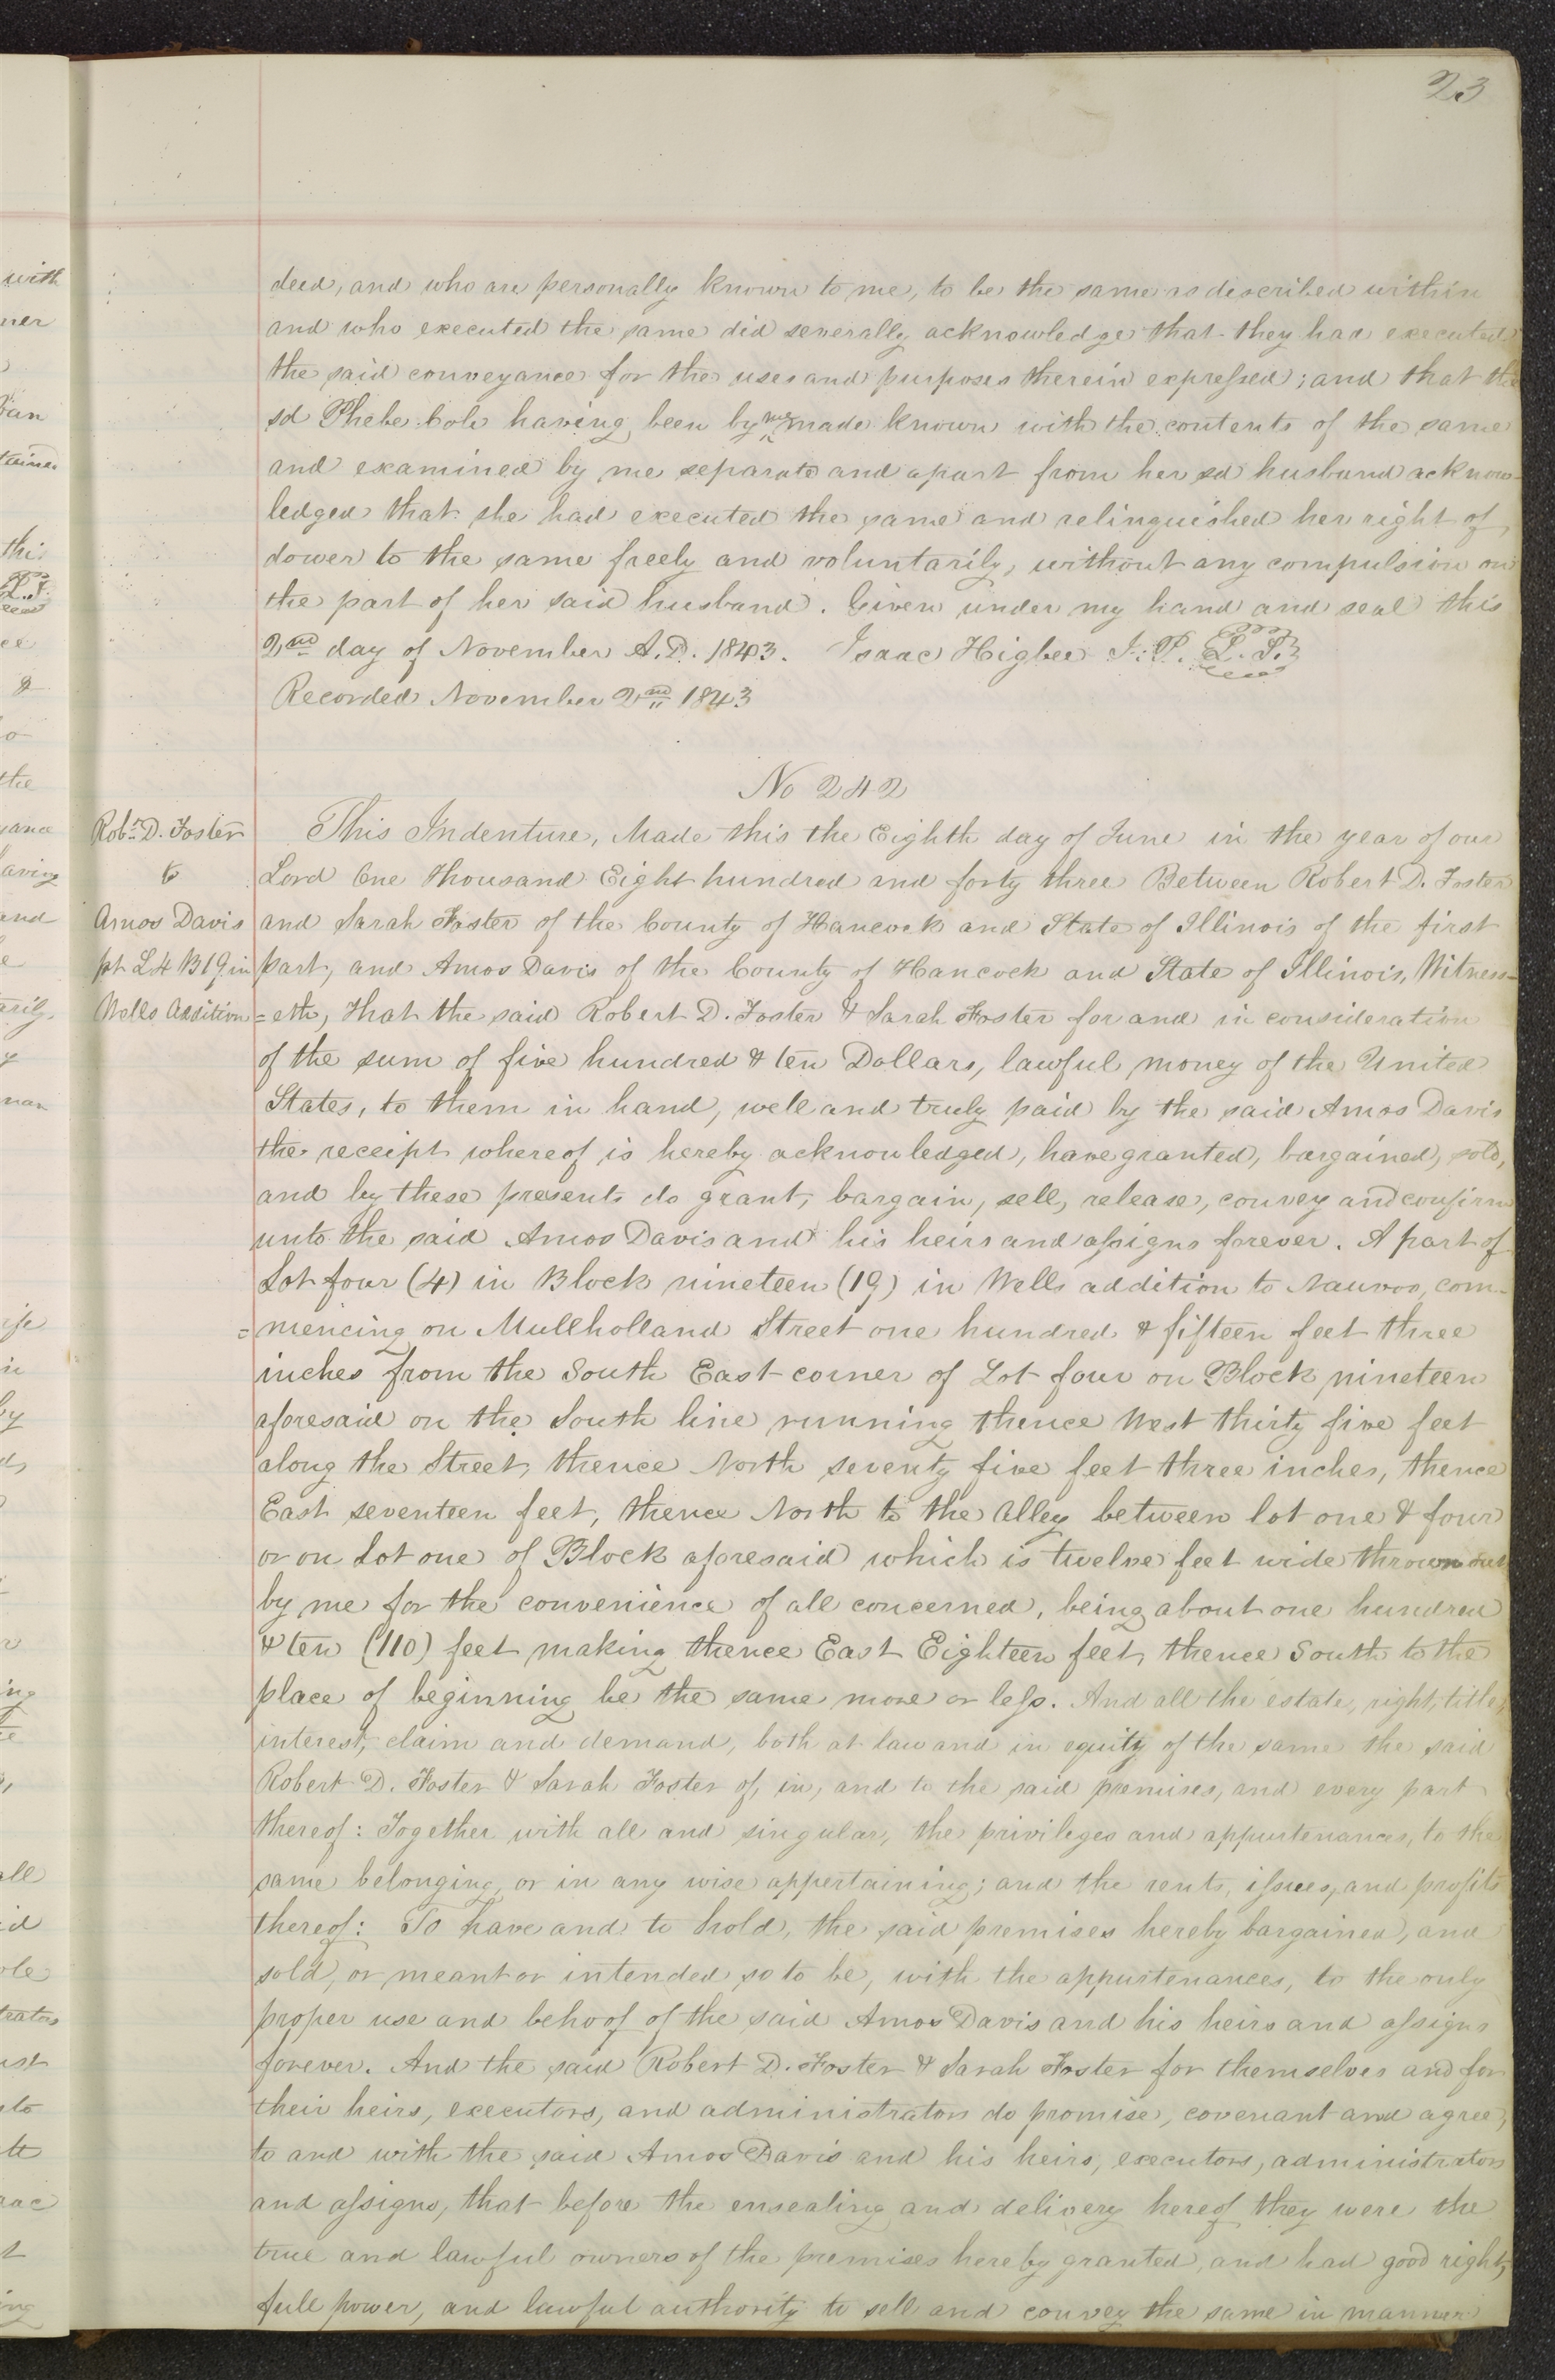 23
deed, and who are personally known to me, to be the same as described within
and who executed the same did severally acknowledge that they had executed
the said conveyance for the uses and purposes therein expressed; and that the
sd Phebe Cole having been by me made known with the contents of the same
and examined by me separate and apart from her sd husband acknow-
ledged that she had executed the same and relinquished her right of
dower to the same freely and voluntarily, without any compulsion on
the part of her said husband. Given under my hand and seal this
2nd day of November A.D. 1843. Isaac Higbee J.P. L.S.
Recorded November 2nd 1843
No 242
Robt. D. Foster
to
Amos Davis
pt L4 B19 in
Wells Addition
This Indenture, Made this the Eighth day of June in the year of our
Lord One Thousand Eight hundred and forty three Between Robert D. Foster
and Sarah Foster of the County of Hancock and State of Illinois of the first
part, and Amos Davis of the County of Hancock and State of Illinois, Witness-
=eth, That the said Robert D. Foster & Sarah Foster for and in consideration
of the sum of five hundred & ten Dollars, lawful money of the United
States, to them in hand, well and truly paid by the said Amos Davis
the receipt whereof is hereby acknowledged, have granted, bargained, sold,
and by these presents do grant, bargain, sell, release, convey and confirm
unto the said Amos Davis and his heirs and assigns forever. A part of
Lot four (4) in Block nineteen (19) in Wells addition to Nauvoo, com-
=mencing on Mullholland Street one hundred & fifteen feet three
inches from the South East corner of Lot four on Block nineteen
aforesaid on the South line running thence West thirty five feet
along the Street, thence North seventy five feet three inches, thence
East seventeen feet, thence North to the Alley between lot one & four
or on Lot one of Block aforesaid which is twelve feet wide thrown out
by me for the convenience of all concerned, being about one hundred
& ten (110) feet making thence East Eighteen feet, thence South to the
place of beginning be the same more or less. And all the estate, right, title,
interest, claim and demand, both at law and in equity of the same the said
Robert D. Foster & Sarah Foster of, in, and to the said premises, and every part
thereof: Together with all and singular, the privileges and appurtenances, to the
same belonging, or in any wise appertaining; and the rents, issues, and profits
thereof: To have and to hold, the said premises hereby bargained, and
sold, or meant or intended so to be, with the appurtenances, to the only
proper use and behoof of the said Amos Davis and his heirs and assigns
forever. And the said Robert D. Foster & Sarah Foster for themselves and for
their heirs, executors, and administrators do promise, covenant and agree,
to and with the said Amos Davis and his heirs, executors, administrators
and assigns, that before the ensealing and delivery hereof they were the
true and lawful owners of the premises hereby granted, and had good right,
full power, and lawful authority to sell and convey the same in manner